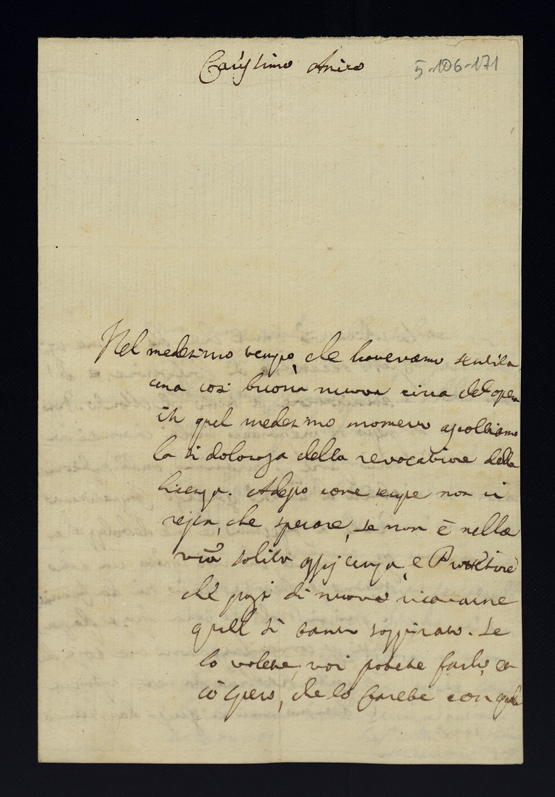 Carissimo Amico
5-106-171
Nel medesimo tempo che havevamo sentita
una così buona nuova circa del opera
in quel medesimo momento ascoltiamo
la si dolorosa della revocatione della
licenza. Adesso come sempre non ci
resta, che sperare, se non è nella
vostra solita assistenza, e Protettione
che possi di nuovo ricavarne
quell si tanto sospirato. Se
lo volete, voi potete farlo, et
io spero, che lo farete con quella